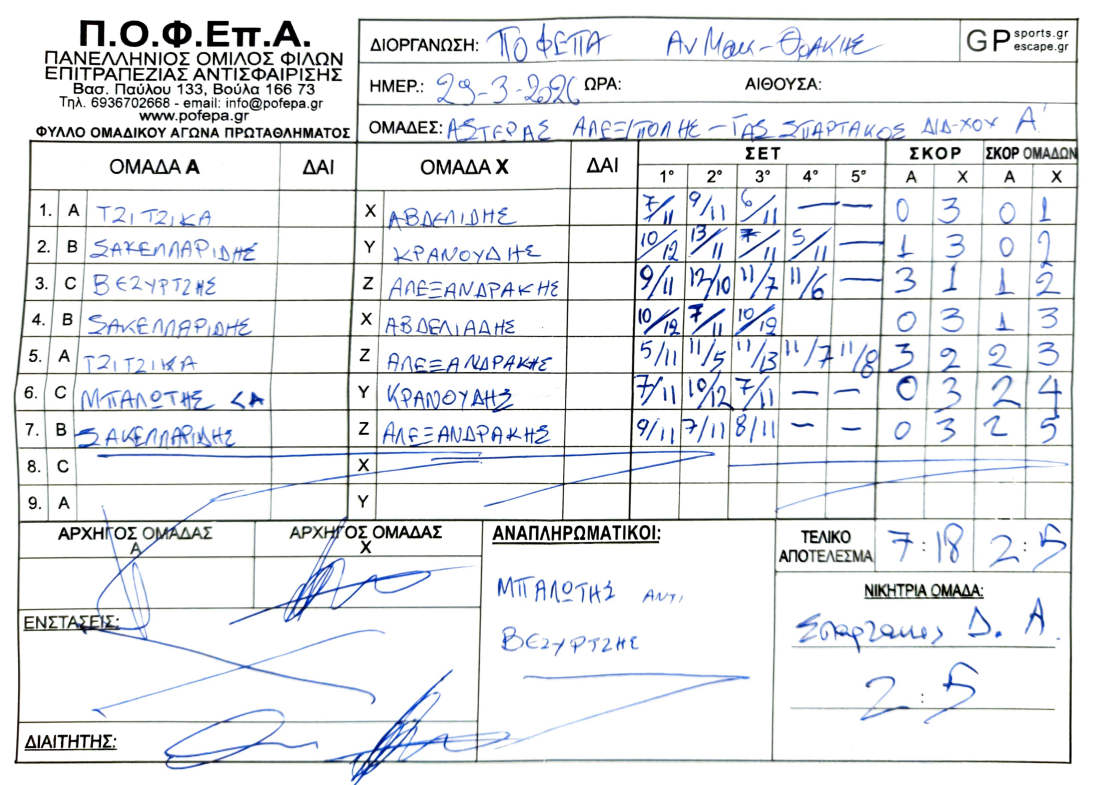 Π.Ο.Φ.Επ.Α.
ΠΑΝΕΛΛΗΝΙΟΣ ΟΜΙΛΟΣ ΦΙΛΩΝ
ΕΠΙΤΡΑΠΕΖΙΑΣ ΑΝΤΙΣΦΑΙΡΙΣΗΣ
Βασ. Παύλου 133, Βούλα 166 73
Τηλ. 6936702668 - email: info@pofepa.gr
www.pofepa.gr
ΦΥΛΛΟ ΟΜΑΔΙΚΟΥ ΑΓΩΝΑ ΠΡΩΤΑΘΛΗΜΑΤΟΣ
ΔΙΟΡΓΑΝΩΣΗ: ΠΟΦΕΠΑ Αν Μακ-Θρακης
GP sports.gr
escape.gr
ΗΜΕΡ.: 29-3-2026 ΩΡΑ: ΑΙΘΟΥΣΑ:
ΟΜΑΔΕΣ: ΑΣΤΕΡΑΣ ΑΛΕΞ/ΠΟΛΗΣ - ΓΑΣ ΣΠΑΡΤΑΚΟΣ ΔΙΔ-ΧΟΥ Α'
ΟΜΑΔΑ Α ΔΑΙ ΟΜΑΔΑ Χ ΔΑΙ ΣΕΤ ΣΚΟΡ ΣΚΟΡ ΟΜΑΔΩΝ
1° 2° 3° 4° 5° Α Χ Α Χ
1. A ΤΖΙΤΖΙΚΑ X ΑΒΔΕΛΙΔΗΣ 7/11 9/11 6/11 — — 0 3 0 1
2. B ΣΑΚΕΛΛΑΡΙΔΗΣ Y ΚΡΑΝΟΥΔΗΣ 10/12 13/11 7/11 5/11 — 1 3 0 2
3. C ΒΕΖΥΡΤΖΗΣ Z ΑΛΕΞΑΝΔΡΑΚΗΣ 9/11 12/10 11/7 11/6 — 3 1 1 2
4. B ΣΑΚΕΛΛΑΡΙΔΗΣ X ΑΒΔΕΛΙΑΔΗΣ 10/12 7/11 10/12 0 3 1 3
5. A ΤΖΙΤΖΙΚΑ Z ΑΛΕΞΑΝΔΡΑΚΗΣ 5/11 11/5 11/13 11/7 11/8 3 2 2 3
6. C ΜΠΑΛΩΤΗΣ Y ΚΡΑΝΟΥΔΗΣ 7/11 10/12 7/11 — — 0 3 2 4
7. B ΣΑΚΕΛΛΑΡΙΔΗΣ Z ΑΛΕΞΑΝΔΡΑΚΗΣ 9/11 7/11 8/11 — — 0 3 2 5
8. C X
9. A Y
ΑΡΧΗΓΟΣ ΟΜΑΔΑΣ
Α
ΑΡΧΗΓΟΣ ΟΜΑΔΑΣ
Χ
ΑΝΑΠΛΗΡΩΜΑΤΙΚΟΙ:
ΜΠΑΛΩΤΗΣ ΑΝΤΙ
ΒΕΖΥΡΤΖΗΣ
ΤΕΛΙΚΟ
ΑΠΟΤΕΛΕΣΜΑ 7:18 2:5
ΝΙΚΗΤΡΙΑ ΟΜΑΔΑ:
Σπαρτακος Δ. Α.
2:5
ΕΝΣΤΑΣΕΙΣ:
ΔΙΑΙΤΗΤΗΣ: